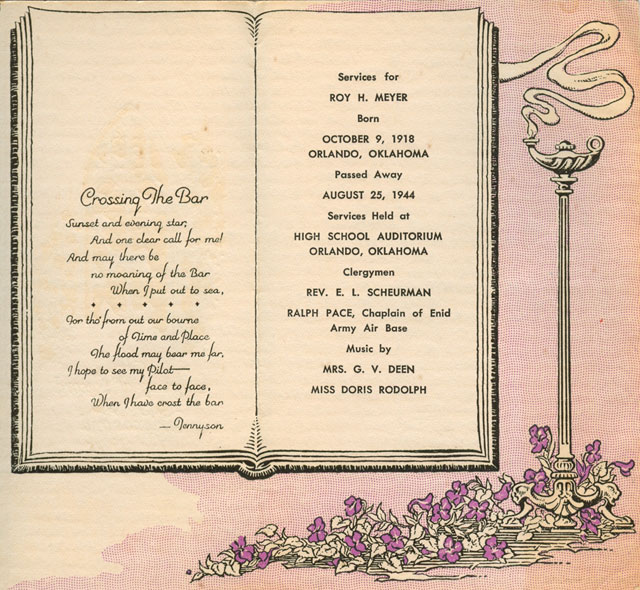 Crossing The Bar
Sunset and evening star,
And one clear call for me!
And may there be
no moaning of the Bar
When I put out to sea,
For tho' from out our bourne
of Time and Place
The flood may bear me far,
I hope to see my Pilot—
face to face,
When I have crost the bar
— Tennyson
Services for
ROY H. MEYER
Born
OCTOBER 9, 1918
ORLANDO, OKLAHOMA
Passed Away
AUGUST 25, 1944
Services Held at
HIGH SCHOOL AUDITORIUM
ORLANDO, OKLAHOMA
Clergymen
REV. E. L. SCHEURMAN
RALPH PACE, Chaplain of Enid
Army Air Base
Music by
MRS. G. V. DEEN
MISS DORIS RODOLPH